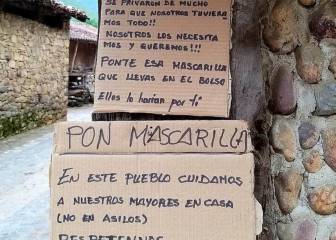 SE PRIVARON DE MUCHO
PARA QUE NOSOTROS TUVIERA
MOS TODO!!
NOSOTROS LOS NECESITA
MOS Y QUEREMOS!!!
PONTE ESA MASCARILLA
QUE LLEVAS EN EL BOLSO
Ellos lo harían por ti
PON MASCARILLA
EN ESTE PUEBLO CUIDAMOS
A NUESTROS MAYORES EN CASA
(NO EN ASILOS)